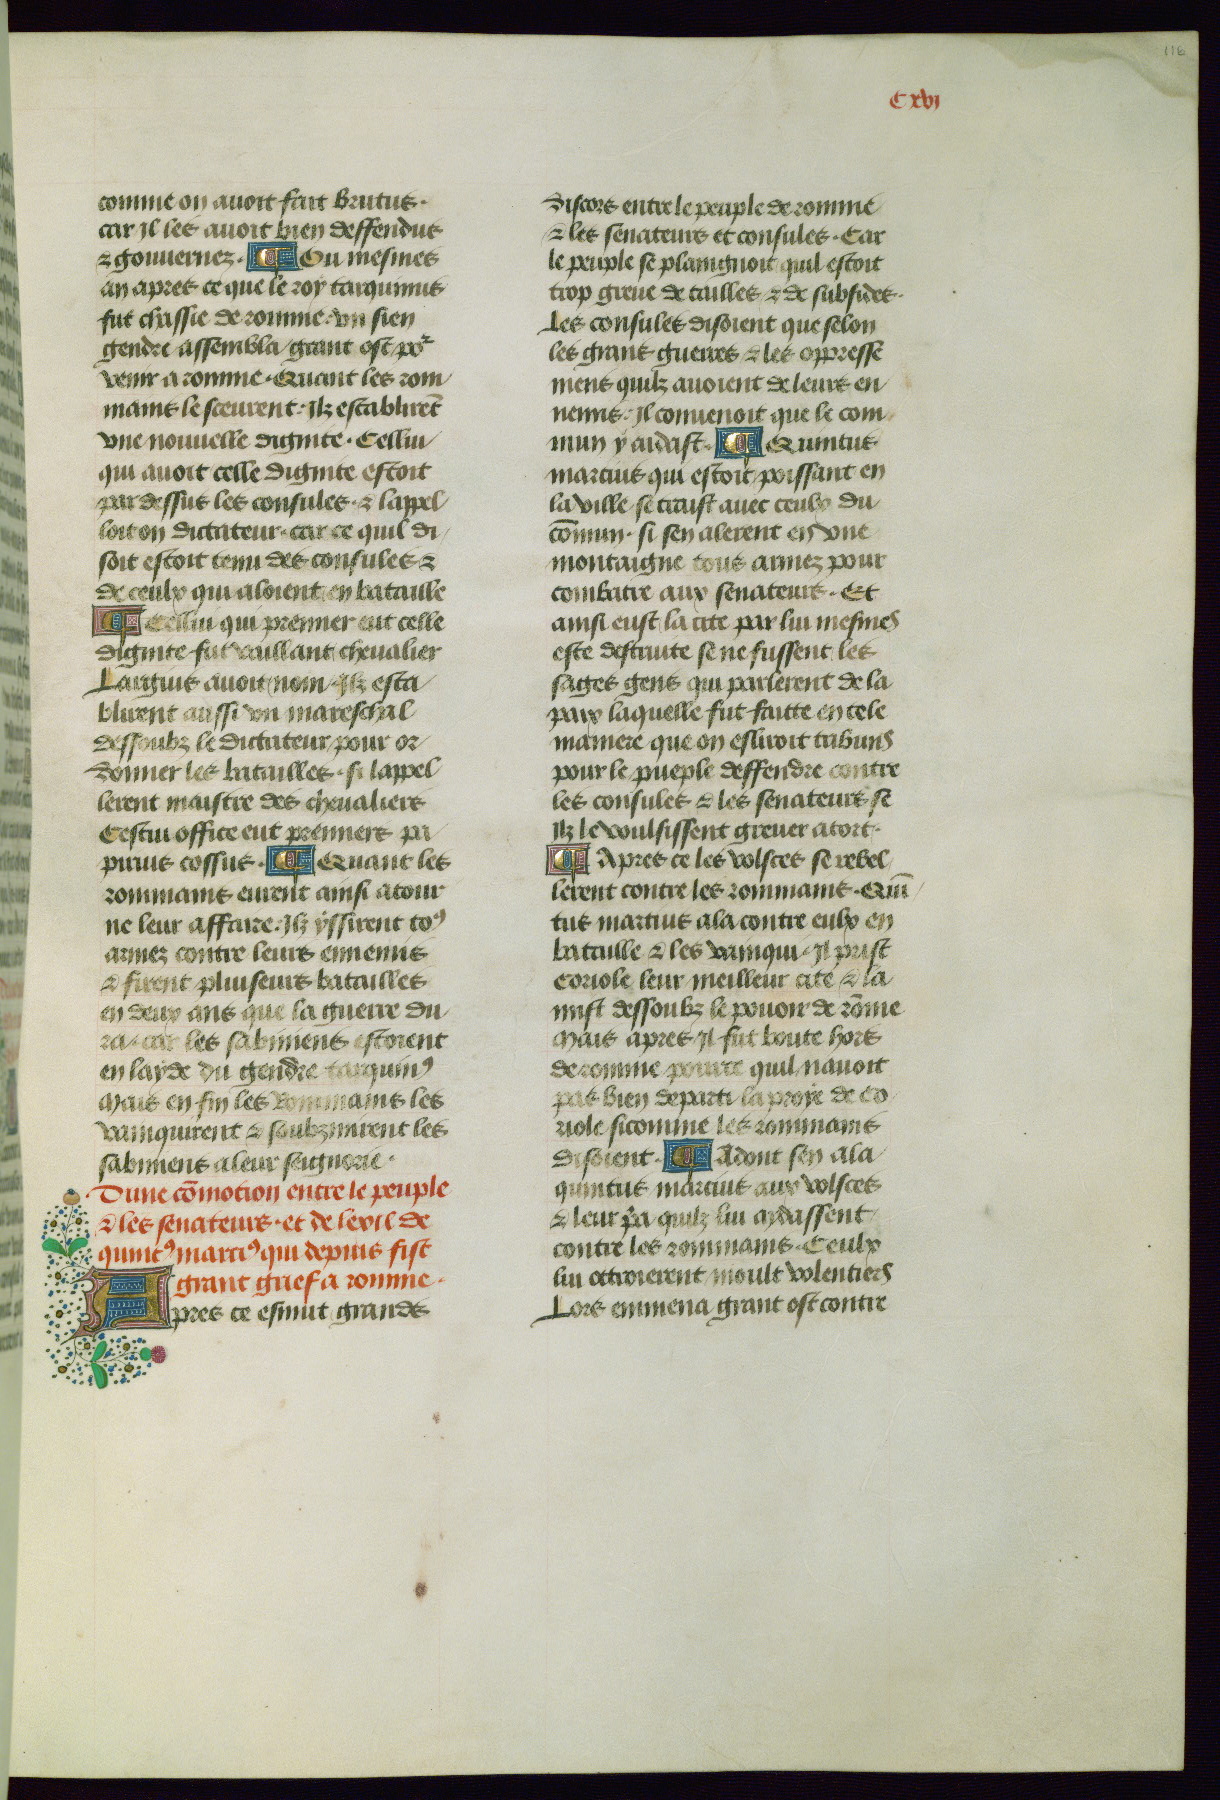 116
Cxvi
comme on avoit fait Brutus.
car Il les avoit bien deffendus
& gouvernez. Ou mesmes
an apres ce que le roy tarquinus
fut chassie de romme. vn sien
gendre assembla grant ost por
venir a romme. Quant les rom
mains le sceurent. Ilz establirēt
vne nouuelle dignite. Cellui
qui avoit celle dignite estoit
par dessus les consules. & lappel
loit on dictateur. car ce quil di
soit estoit tenu des consules &
de ceulx qui aloient en bataille
Cellui qui premier eut celle
dignite fut vaillant chevalier
Largius avoit nom. Ilz esta
blirent aussi vn mareschal
dessoubz le dictateur pour or
donner les batailles. si lappel
lerent maistre des chevaliers
Cestui office eut premiers pa
pirius cossus. Quant les
rommains eurent ainsi atour
ne leur affaire. Ilz yssirent to9
armez contre leurs ennemis
& firent pluiseurs batailles
en deux ans que la guerre du
ra. car les sabiniens estoient
en layde du gendre tarquini9
Mais en fin les Rommains les
vainquirent & soubzmirent les
sabiniens a leur seignorie.
Dune cōmotion entre le peuple
& les senateurs. et de lexil de
quint9 marci9 qui depuis fist
grant grief a romme.
Apres ce esmut grande
discors entre le peuple de romme
& les senateurs et consules. Car
le peuple se plaingnoit quil estoit
trop greue de tailles & de subsides.
Les consules disoient que selon
les grans guerres & les oppresse
mens quilz avoient de leurs en
nemis. Il convenoit que le com
mun y aidast. Quintus
marcius qui estoit poissant en
la ville se traist avec ceulx du
cōmun. si sen alerent en vne
montaigne tous armez pour
combatre aux senateurs. Et
ainsi eust la cite par lui mesmes
este destruite se ne fussent les
sages gens qui parlerent de la
paix laquelle fut faitte en cele
maniere que on esliroit tribuns
pour le pueple deffendre contre
les consules & les senateurs se
Ilz le voulsissent grever a tort.
Apres ce les volsces se rebel
lerent contre les rommains. Quī
tus martius ala contre eulx en
bataille & les vainqui. Il prist
Coriole leur meilleur cite & la
mist dessoubz le pouoir de rōme
Mais apres Il fut boute hors
de romme pource quil n'avoit
pas bien departi la proye de Co
riole sicomme les rommains
disoient. Adont sen ala
quintus martius aux volsces
& leur p̄a quilz lui aydassent
contre les rommains. Ceulx
lui ottroierent moult volentiers
Lors emmena grant ost contre